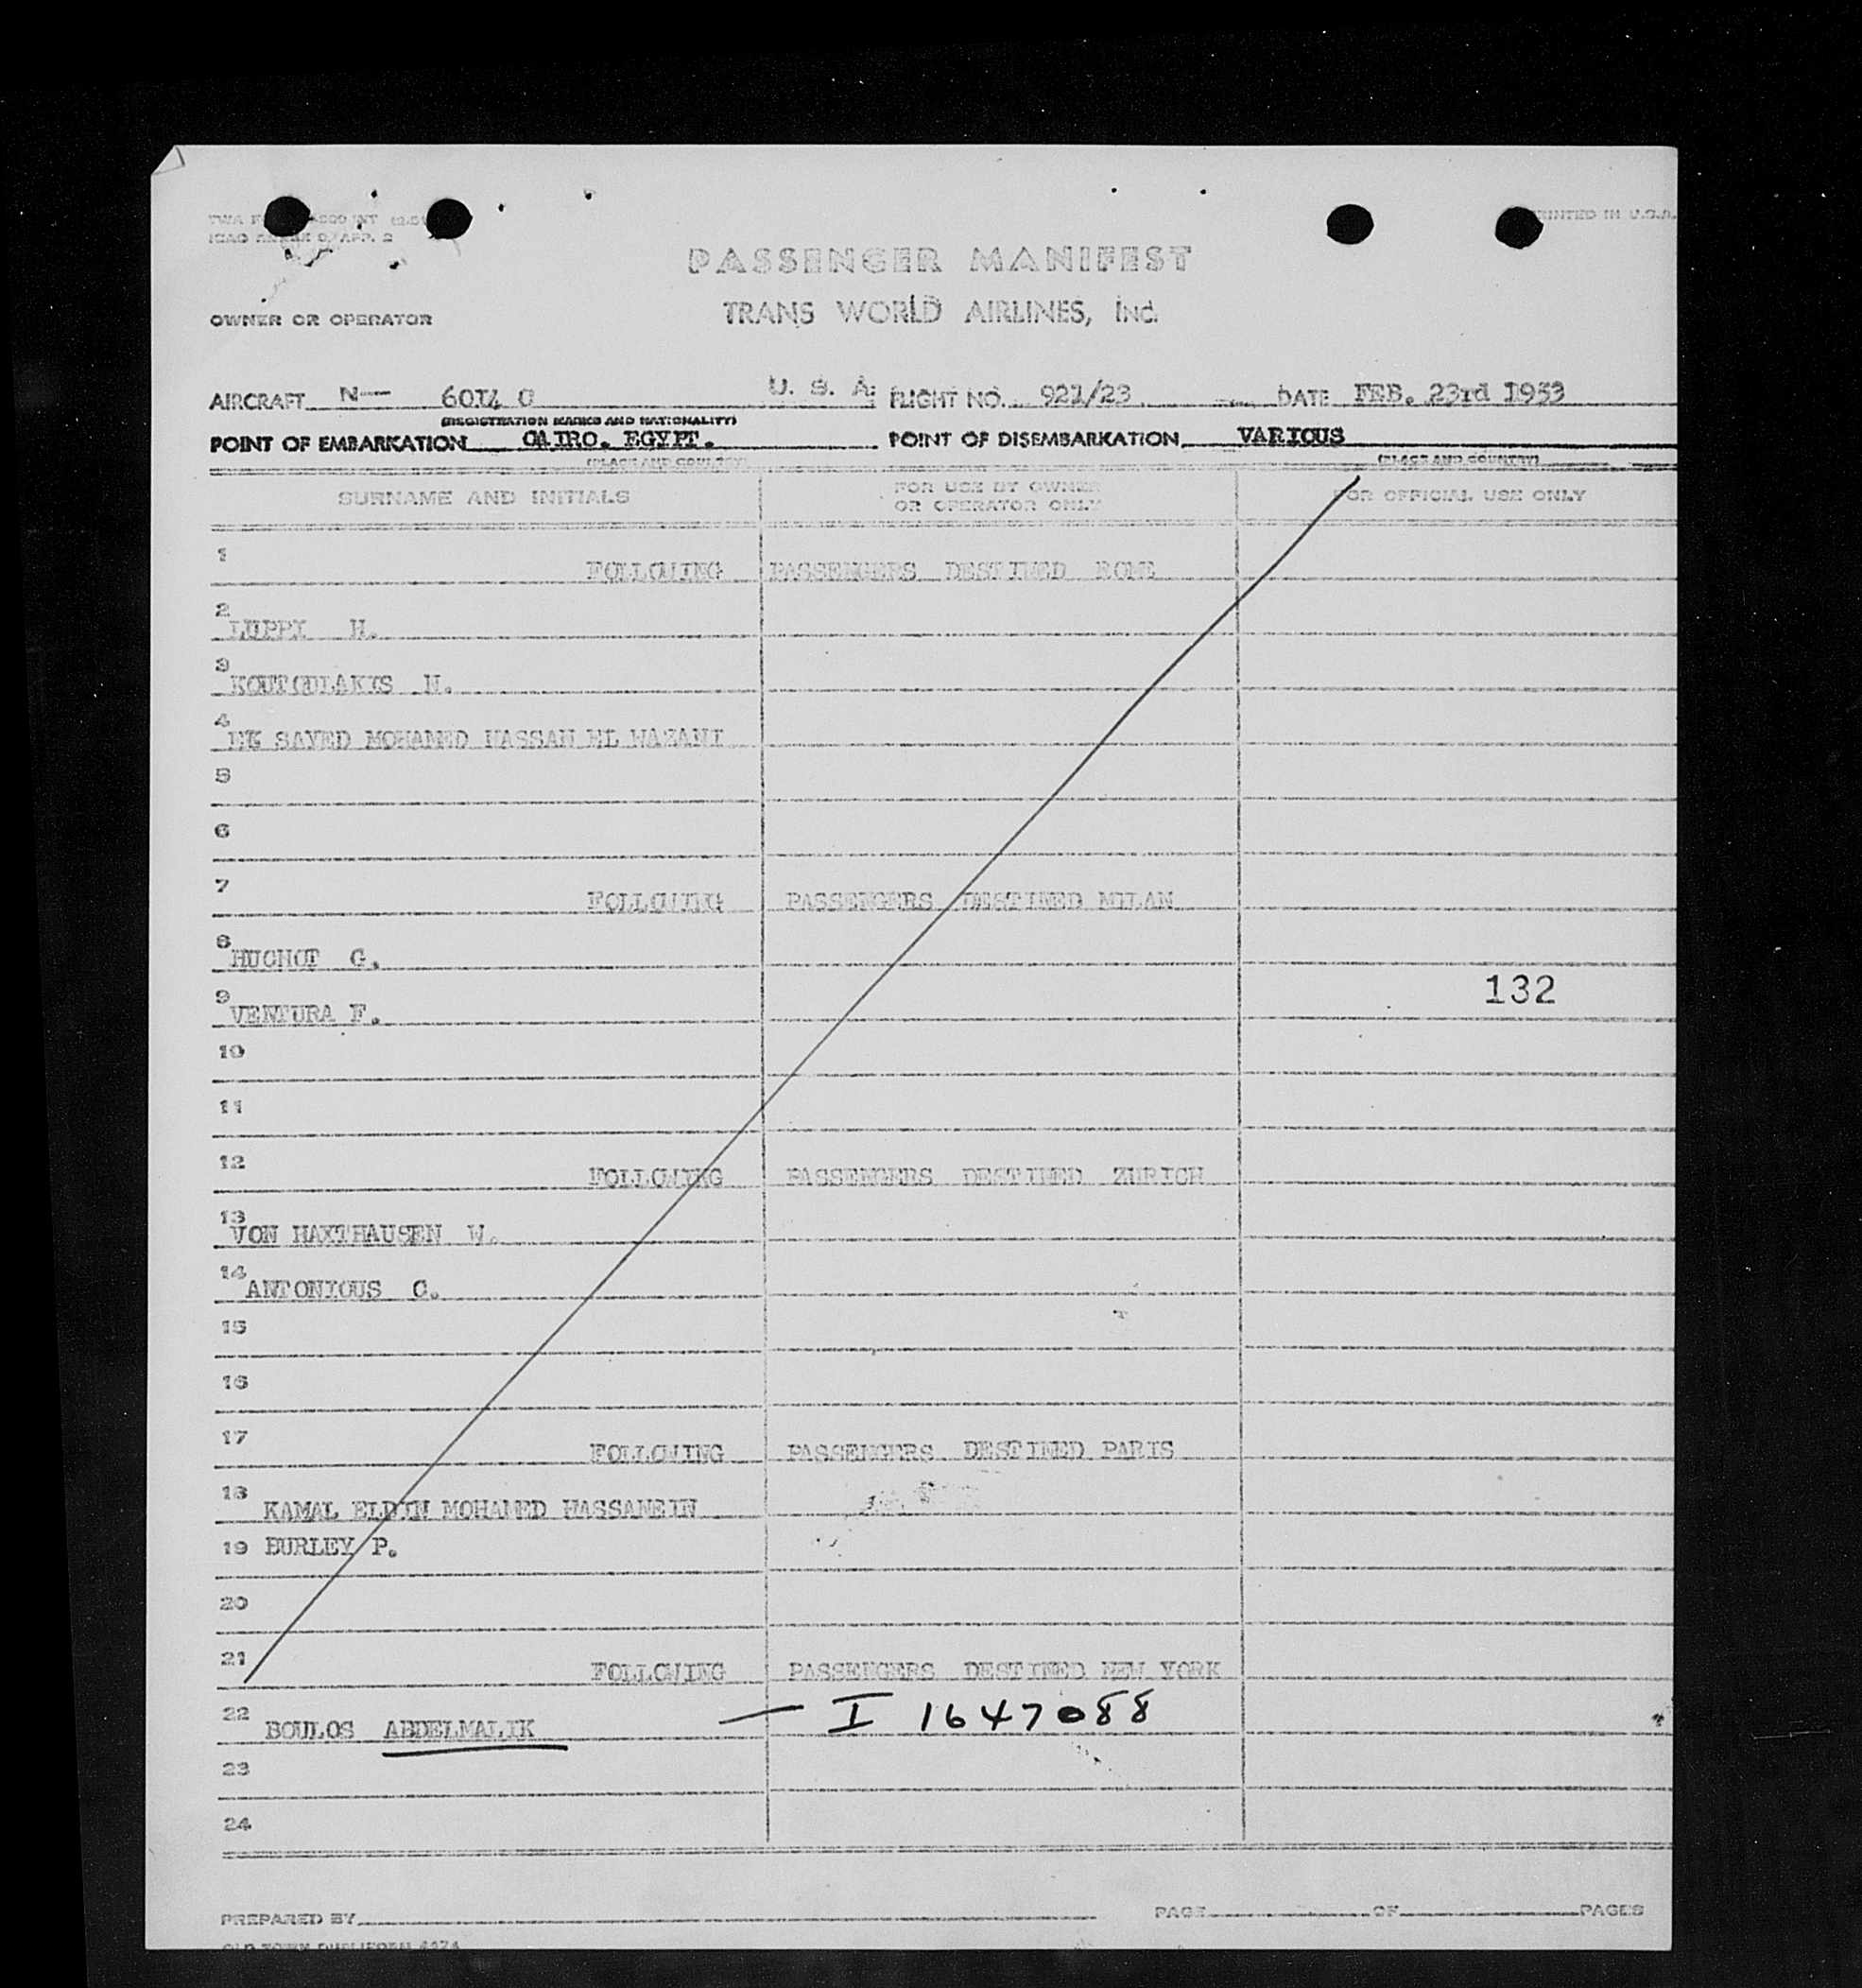 PRINTED IN U.S.A.
ICAO ANNEX 9/APP. 2
PASSENGER MANIFEST
OWNER OR OPERATOR TRANS WORLD AIRLINES, Inc.
AIRCRAFT N— 6014 C U. S. A. FLIGHT NO. 921/23 DATE FEB. 23rd 1953
(REGISTRATION MARKS AND NATIONALITY)
POINT OF EMBARKATION CAIRO. EGYPT. POINT OF DISEMBARKATION VARIOUS
(PLACE AND COUNTRY) (PLACE AND COUNTRY)
SURNAME AND INITIALS FOR USE BY OWNER OR OPERATOR ONLY FOR OFFICIAL USE ONLY
1 FOLLOWING PASSENGERS DESTINED ROME
2 LUPPI H.
3 KOUTOULAKIS N.
4 SAYED MOHAMED HASSAN EL HAZANI
5
6
7 FOLLOWING PASSENGERS DESTINED MILAN
8 HUGNOT G.
132
9 VENTURA F.
10
11
12 FOLLOWING PASSENGERS DESTINED ZURICH
13 VON HAXTHAUSEN W.
14 ANTONIOUS C.
15
16
17 FOLLOWING PASSENGERS DESTINED PARIS
18 KAMAL ELDIN MOHAMED HASSANEIN
19 BURLEY P.
20
21 FOLLOWING PASSENGERS DESTINED NEW YORK
22 BOULOS ABDELMALIK — I 1647088
23
24
PREPARED BY PAGE OF PAGES